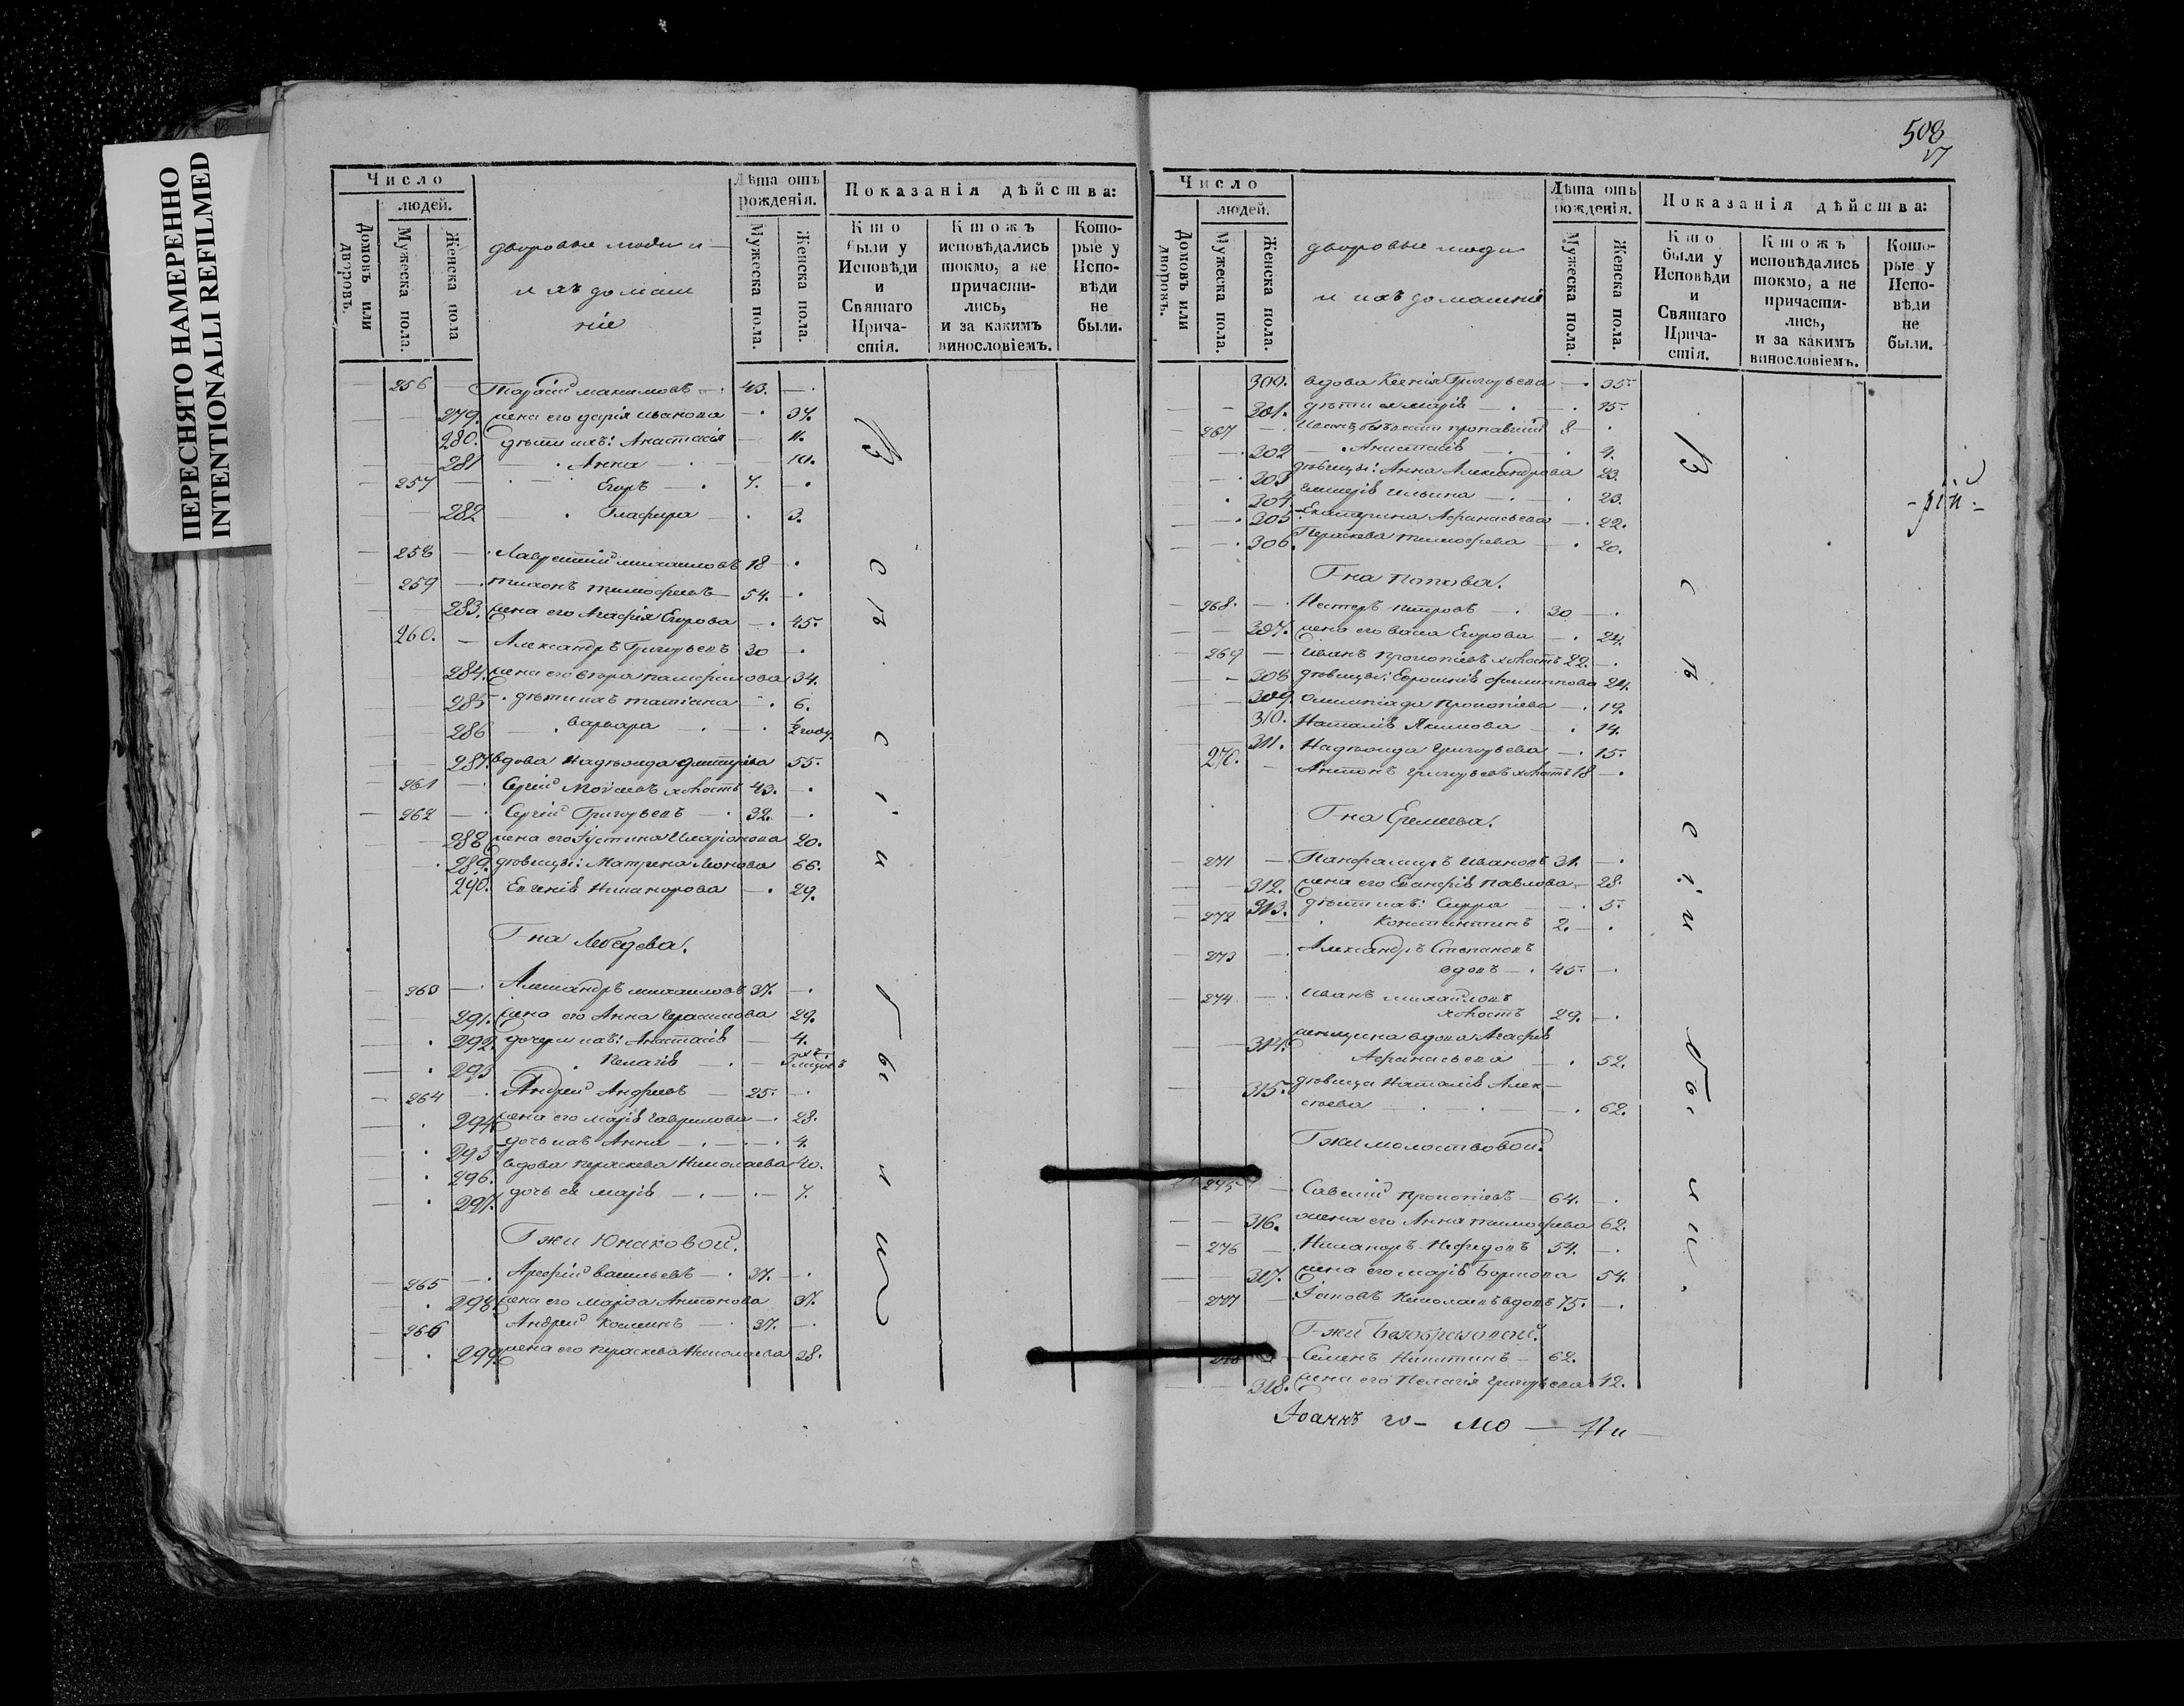 ПЕРЕСНЯТО НАМЕРЕННО
INTENTIONALLI REFILMED
Число
людей.
Домовъ или дворовъ.
Мужеска пола.
Женска пола
дворовые люди и
и ихъ домаш
ніе
Лѣта отъ рожденія.
Мужеска пола.
Женска пола.
Показанія дѣйства:
Кто были у Исповѣди и Святаго Причастія.
Ктожъ исповѣдались токмо, а не причастились, и за какимъ винословіемъ.
Которые у Исповѣди не были.
256 — 43. —
279. жена его дарія иванова — 37.
280. дѣти ихъ: Анастасія — 11.
281 — Анна — 10.
257 — Егоръ — 7. —
282 — Глафира — 3.
258 — Лаврентій михаиловъ 18 —
259 — тихонъ тимофеевъ — 54. —
283. жена его Агафія Егорова — 45.
260. — Александръ Григорьевъ 30 —
284. жена его 34.
285 — дѣти ихъ татіана — 6.
286 — варвара — ½ году.
287. вдова Надѣжда дмитріева 55.
261 — Сергій Моисеевъ холостъ 43. —
262 — Сергій Григорьевъ — 32. —
288. жена его Іустина Иларіонова 20.
289. дѣвицы: Матрена Леонова 66.
290. Евгенія Никанорова — 29.
Г-на Лебедева.
263 — Александръ михаиловъ 37. —
291. жена его Анна Герасимова 29.
292. дочери ихъ: Анастасія — 4.
293 Пелагія —
264 — Андрей Андреевъ — 25. —
294. жена его марія гаврилова — 28.
295. дочь ихъ Анна — 4.
296. вдова параскева Николаева 40.
297. дочь ея марія — 7.
Г-жи Юнаковой.
265 — Арефій васильевъ — 37. —
298. жена его марфа Антонова 37.
266 Андрей Козминъ — 37. —
299. жена его параскева Николаева 38.
508
Число
людей.
Домовъ или дворовъ.
Мужеска пола.
Женска пола.
дворовые люди
и ихъ домашніе
Лѣта отъ рожденія.
Мужеска пола.
Женска пола.
Показанія дѣйства:
Кто были у Исповѣди и Святаго Причастія.
Ктожъ исповѣдались токмо, а не причастились, и за какимъ винословіемъ.
Которые у Исповѣди не были.
300. вдова Ксенія Григорьева — 35.
301. дѣти ея марія — 15.
267 — Иванъ 8 —
302 — Анастасія 4.
303 дѣвицы: Анна Александрова 23.
304. Гликерія Ильина — 23.
305 Екатерина Афанасьева — 22.
306. Параскева тимофеева — 20.
-рій-
Г-на Попова.
268. — Нестеръ петровъ — 30 —
307. жена его васса Егорова — 24.
269 — Иванъ прокопіевъ холостъ 22. —
308 дѣвицы: Евфросинія филиппова 24.
309. олимпіада прокопіева — 19.
310. Наталія Якимова — 14.
311. Надѣжда григорьева — 15.
270. — Антонъ григорьевъ холостъ 18 —
Г-на Еремеева.
271 — Ивановъ 31. —
312. жена его павлова — 28.
313. дѣти ихъ: — 5.
272 — Константинъ 2. —
273 — Александръ Степановъ
вдовъ — 45. —
274 — иванъ михайловъ
холостъ 29. —
314. женщина вдова Агафія
Афанасьева — 52.
315. дѣвица Наталія Алек-
сѣева — 62.
Г-жи молоствовой.
275 — Савелій прокопіевъ — 64. —
316. жена его Анна тимофеева 62.
276 — Никаноръ Нефедовъ 54. —
317. жена его марія 54.
277 — Іаковъ Николаевъ вдовъ 75. —
Г-жи Безобразовой.
Семенъ Никитинъ — 62.
318. жена его Пелагія григорьева 42.
Іоаннъ
В
с
ѣ
с
і
и
б
ы
л
и